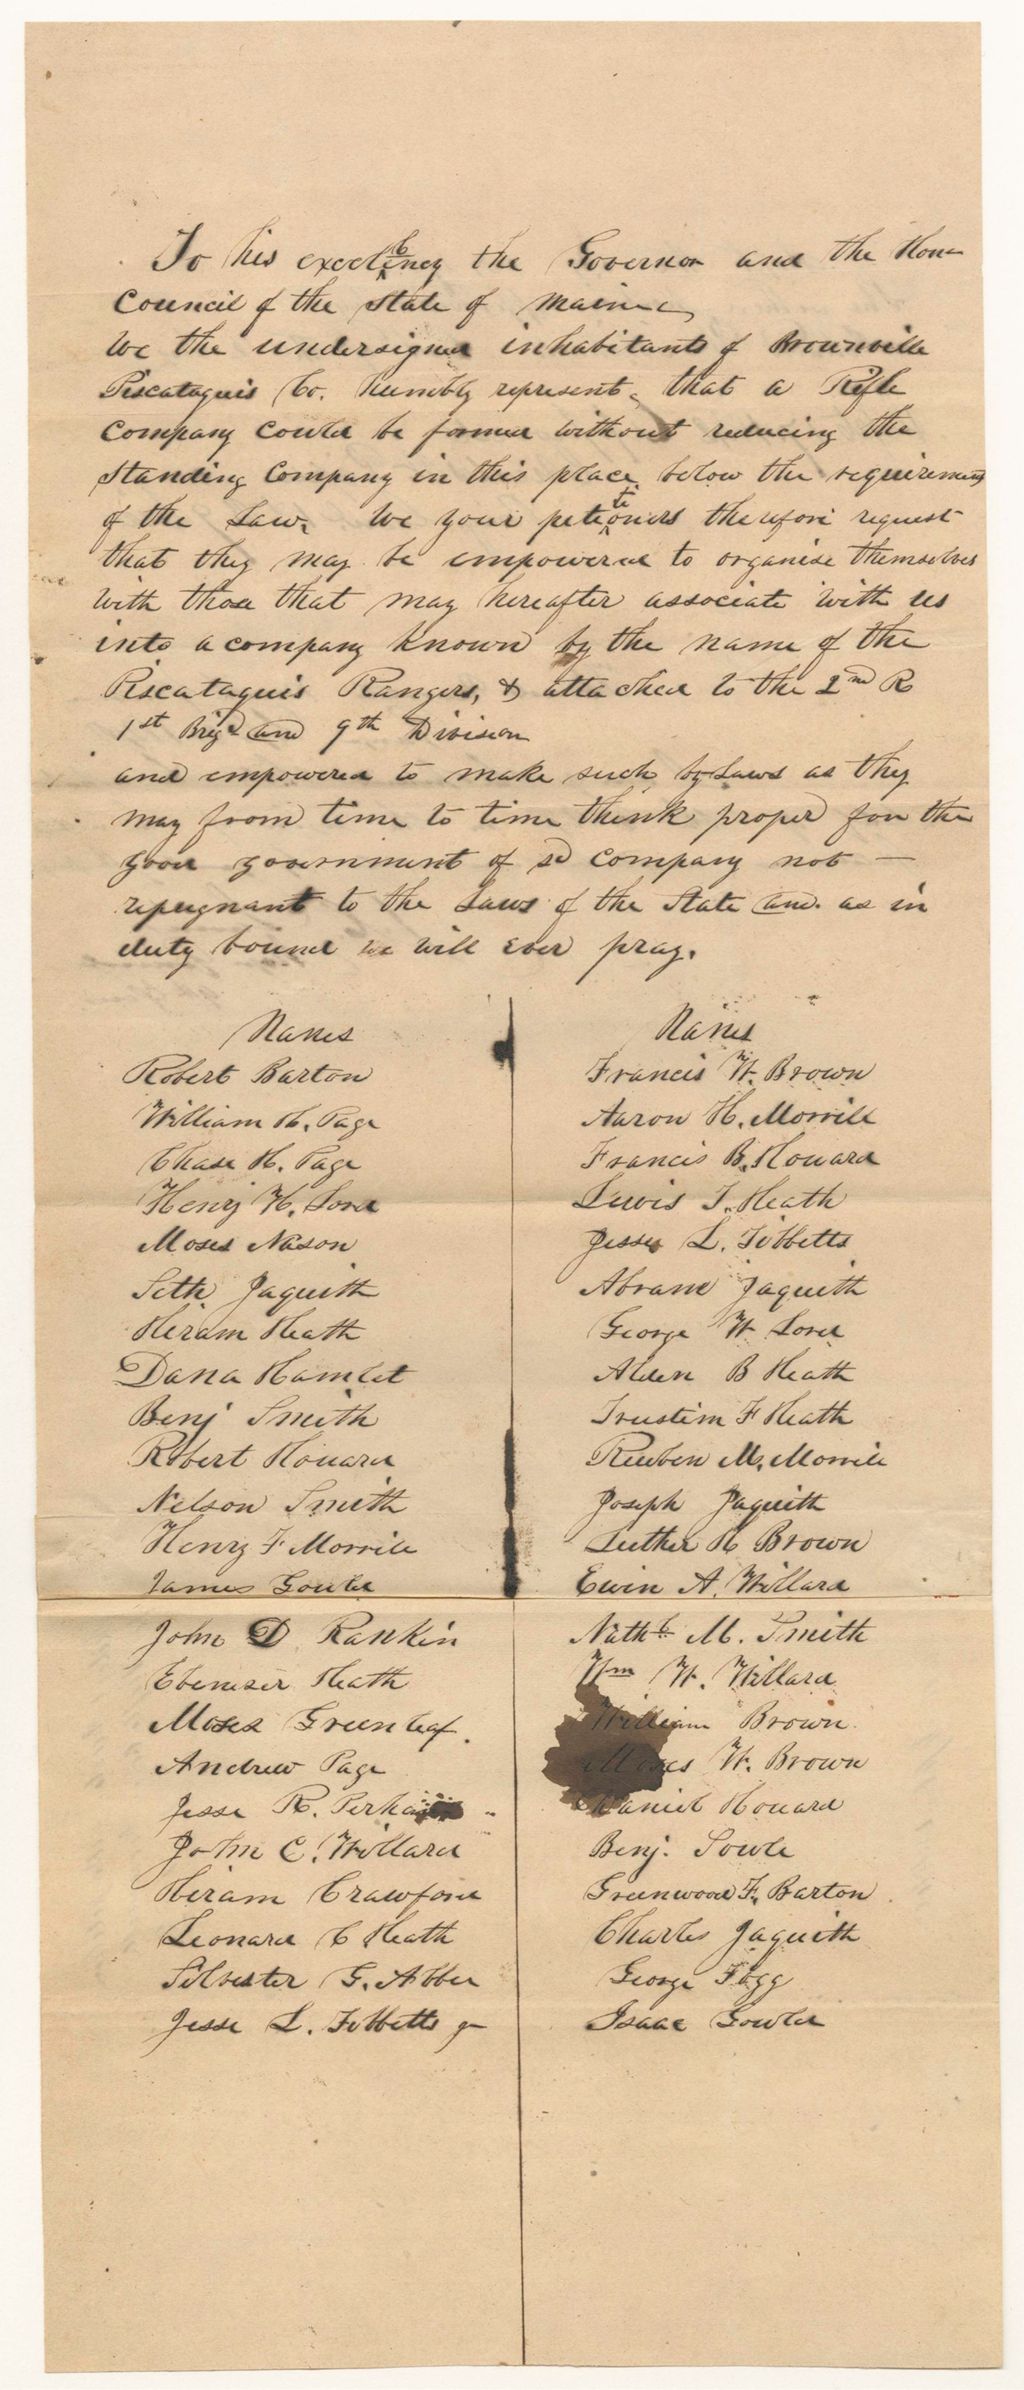 To his excellency the Governor and the Hon
Council of the State of Maine
We the undersigned inhabitants of Brownville
Piscataquis Co. humbly represent, that a Rifle
Company could be formed without reducing the
Standing Company in this place, below the requirements
of the Law, We your petitioners therefore request
that they may be empowered to organise themselves
with those that may hereafter associate with us
into a company known by the name of the
Piscataquis Rangers, & attached to the 2nd R
1st Brigd and 9th Division
and empowered to make such by Laws as they
may from time to time think proper for the
good government of sd company not —
repugnant to the Laws of the State and. as in
duty bound we will ever pray.
Names
Robert Barton
William H. Page
Chase H. Page
Henry H. Lord
Moses Nason
Seth Jaquith
Hiram Heath
Dana Hamlet
Benj Smith
Robert Houard
Nelson Smith
Henry F Morrill
James Gould
John D Rankin
Ebenezer Heath
Moses Greenleaf.
Andrew Page
Jesse R. Perkins
John C. Willard
Hiram Crawford
Leonard C Heath
Silvester G. Abbee
Jesse L. Tibbetts jr
Names
Francis W. Brown
Aaron H. Morrill
Francis B. Houard
Lewis T. Heath
Jesse L. Tibbetts
Abram Jaquith
George W Lord
Alden B Heath
Trustim F Heath
Reuben M. Morrill
Joseph Jaquith
Luther H Brown
Ewin A. Willard
Nathl M. Smith
Wm W. Willard
William Brown
Moses W. Brown
Daniel Houard
Benj. Sowle
Greenwood F. Barton
Charles Jaquith
George Fogg
Isaac Gould